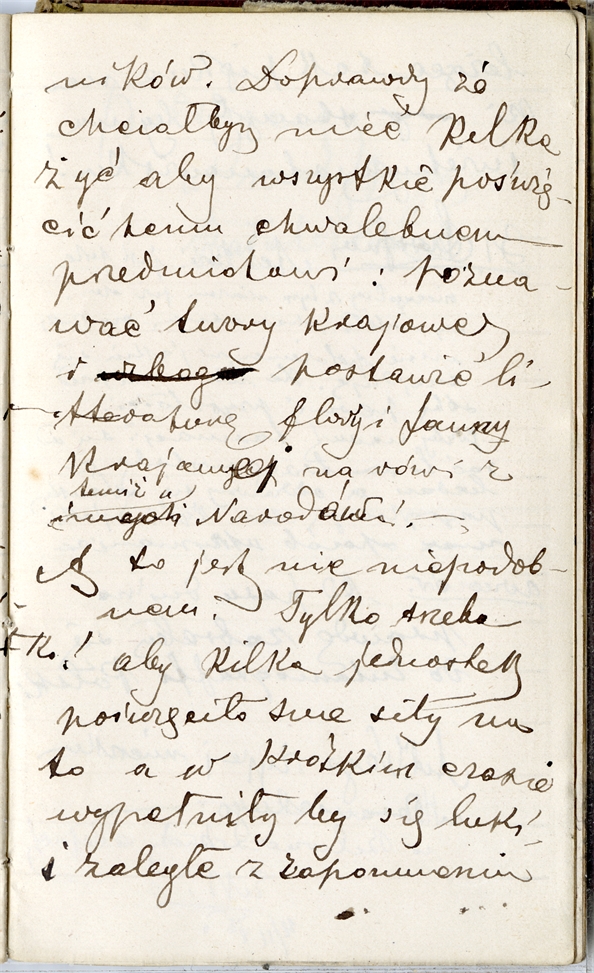 ników. Doprawdy że
chciałbym mieć kilka
żyć aby wszystkie poświę-
cić temu chwalebnem
przedmiotowi: pozna-
wać twory krajowe
i postawić li-
teraturę flory i fauny
krajowej na równi z
temiż u
innych Narodów!.—
A to jest nie niepodob-
nem. Tylko trzeba
aby kilka jednostek
poświęciło swe siły na
to a w krótkim czasie
wypełniły by się luki
i zaległe z zapomnienia